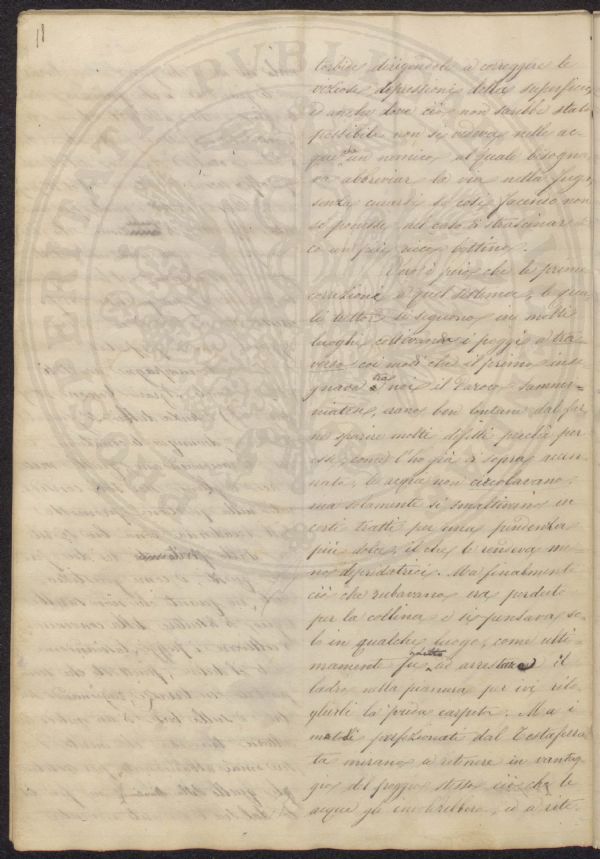 11
torbide dirigendole a correggere le
viziose depressioni della superficie,
ed anche dove ciò non sarebbe stato
possibile non si vedeva nelle ac-
que che un nemico, al quale bisogna-
va abbreviar la via nella fuga
senza curarsi se così facendo non
se ponesse nel caso di strascinar
co un più ricco bottino.
Vero è però che le prime
correzioni a quel sistema, le qua-
li tuttora si seguono in molti
luoghi coltivando i poggi a tra-
verso coi modi che il primo inse-
gnava tra noi il Parroco Sammi-
niatese, erano ben lontane dal far
ne sparire molti difetti poichè per
esse, come l'ho già di sopra accen-
nato, le acque non circolavano,
ma solamente si smaltivano in
certi tratti per una pendenza
più dolce, il che le rendeva me-
no depredatrici. Ma finalment
ciò che rubavano era perduto
per la collina e si pensava so-
lo in qualche luogo, come ulti-
mamente fu detto ad arrestare il
ladro nella pianura per ivi rito-
glierli la preda carpita. Ma i
metodi perfezionati dal Testaferra
ta mirano a ritenere in vantag-
gio del poggio stesso ciò che le
acque gli involerebbero, ed a rite-
PROSPERITATI PVBLICAE